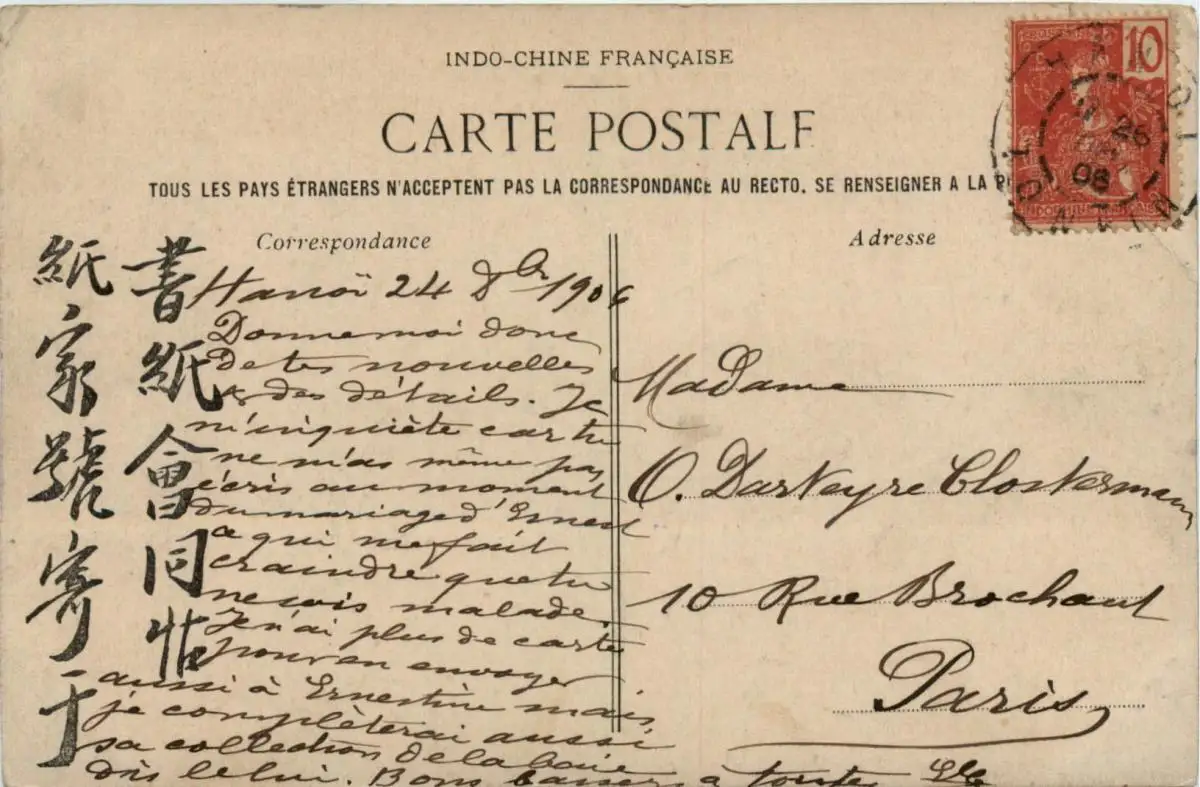 INDO-CHINE FRANÇAISE
CARTE POSTALE
TOUS LES PAYS ÉTRANGERS N'ACCEPTENT PAS LA CORRESPONDANCE AU RECTO. SE RENSEIGNER A LA
10
Correspondance
Adresse
書紙會同
紙家號寄
Hanoï 24 8bre 1906
Donne moi donc
de tes nouvelles
& des détails. Je
m'inquiète car tu
ne m'as même pas
écris au moment
du mariage d'Ernest
ce qui me fait
craindre que tu
ne sois malade.
Je n'ai plus de carte
pour en envoyer
aussi à Ernestine mais
je complèterai aussi
sa collection de la baie
dès le lui. Bons baisers à toute
Madame
O. Darteyre Clostermann
10 Rue Brochant
Paris